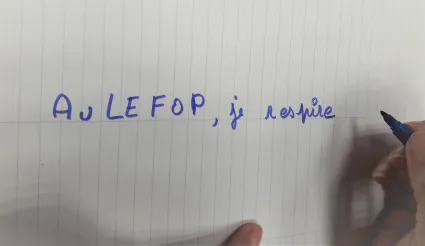 Au LEFOP, je respire